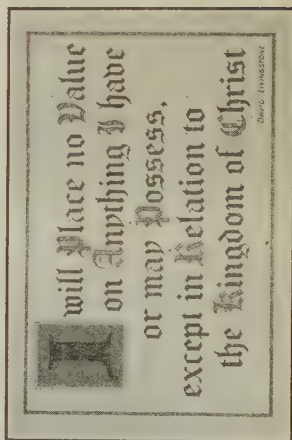 I will Place no Value
on Anything I have
or may Possess,
except in Relation to
the Kingdom of Christ
DAVID LIVINGSTONE